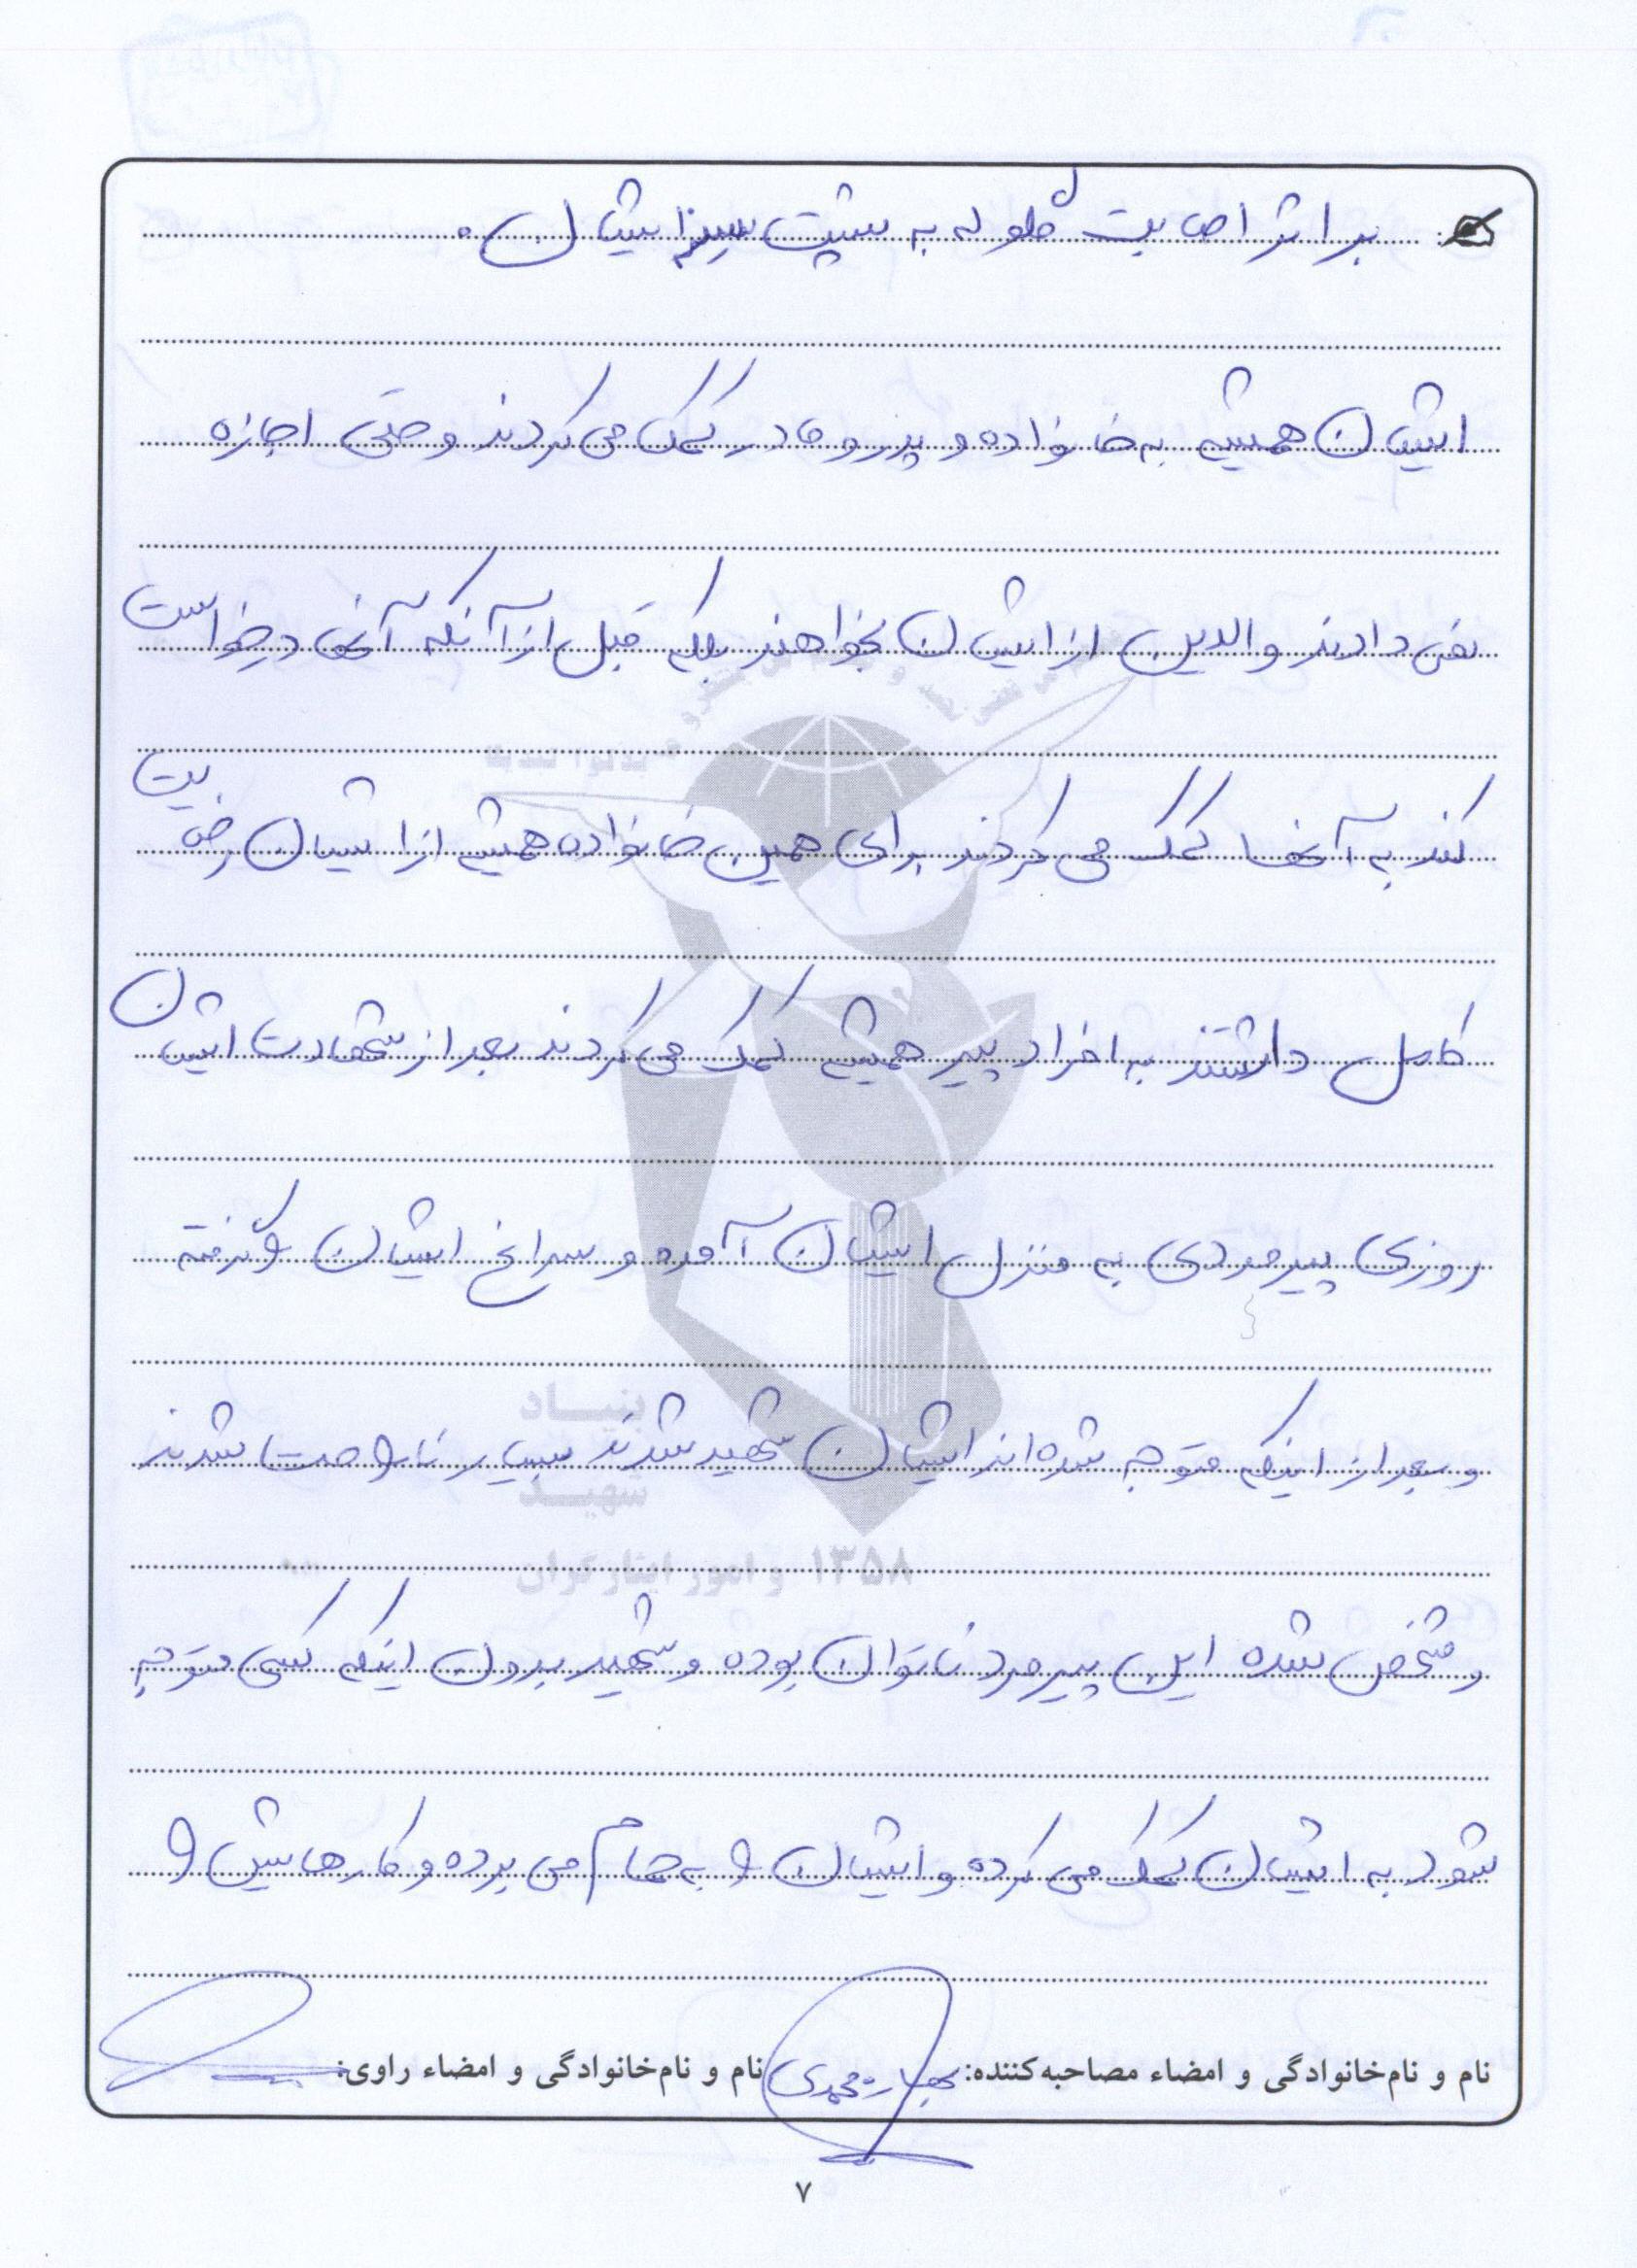 بر اثر اصابت گلوله به پشت سر ایشان.
ایشان همیشه به خانواده و پدر و مادر کمک می کردند و حتی اجازه
نمی دادند والدین از ایشان بخواهند بلکه قبل از آنکه آنها درخواست
کنند به آنها کمک می کردند برای همین خانواده همیشه از ایشان رضایت
کامل داشتند به افراد پیر همیشه کمک می کردند بعد از شهادت ایشان
روزی پیرمردی به منزل ایشان آمده و سراغ ایشان را گرفته
و بعد از اینکه متوجه شده اند ایشان شهید شدند بسیار ناراحت شدند
و مشخص شده این پیرمرد ناتوان بوده و شهید بدون اینکه کسی متوجه
شود به ایشان کمک می کرده و ایشان را به حمام می برده و کارهایش را
نام و نام‌خانوادگی و امضاء مصاحبه‌کننده: بهاره محمدی نام و نام‌خانوادگی و امضاء راوی:
بنیاد
شهید
و امور ایثارگران ۱۳۵۸
۷